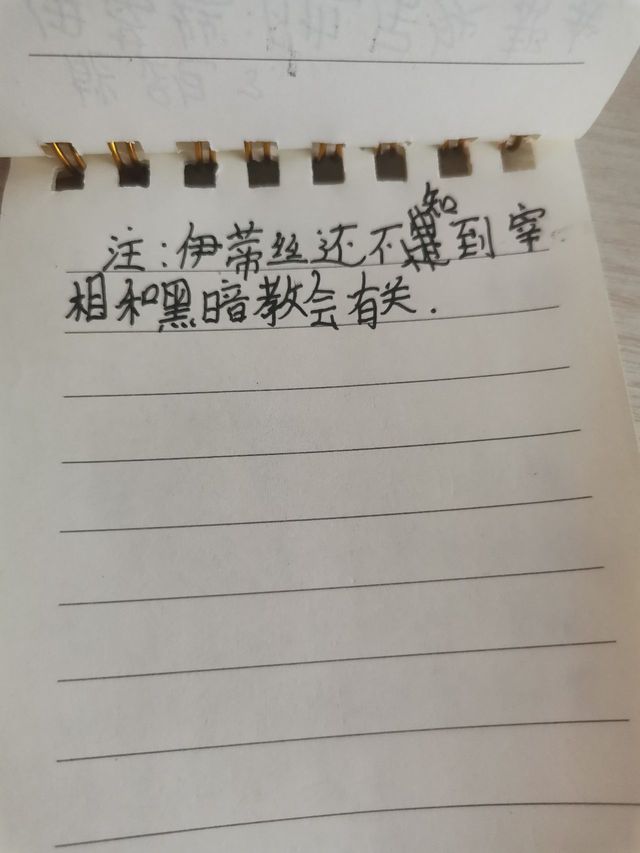 注：伊蒂丝还不知到宰
相和黑暗教会有关.